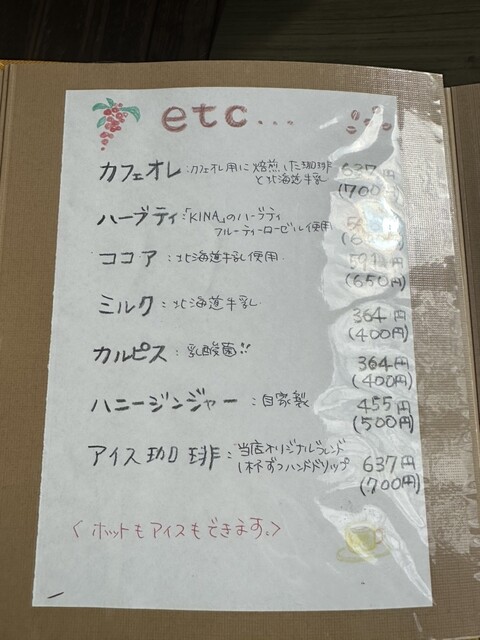 etc...
カフェオレ：カフェオレ用に焙煎した珈琲 637円
と北海道牛乳 (700円)
ハーブティ：「KINA」のハーブティ
フルーティーローゼル使用
ココア：北海道牛乳使用
(650円)
ミルク：北海道牛乳 364円
(400円)
カルピス：乳酸菌!! 364円
(400円)
ハニージンジャー：自家製 455円
(500円)
アイス珈琲：当店オリジナルブレンド
1杯ずつハンドドリップ 637円
(700円)
<ホットもアイスもできます。>